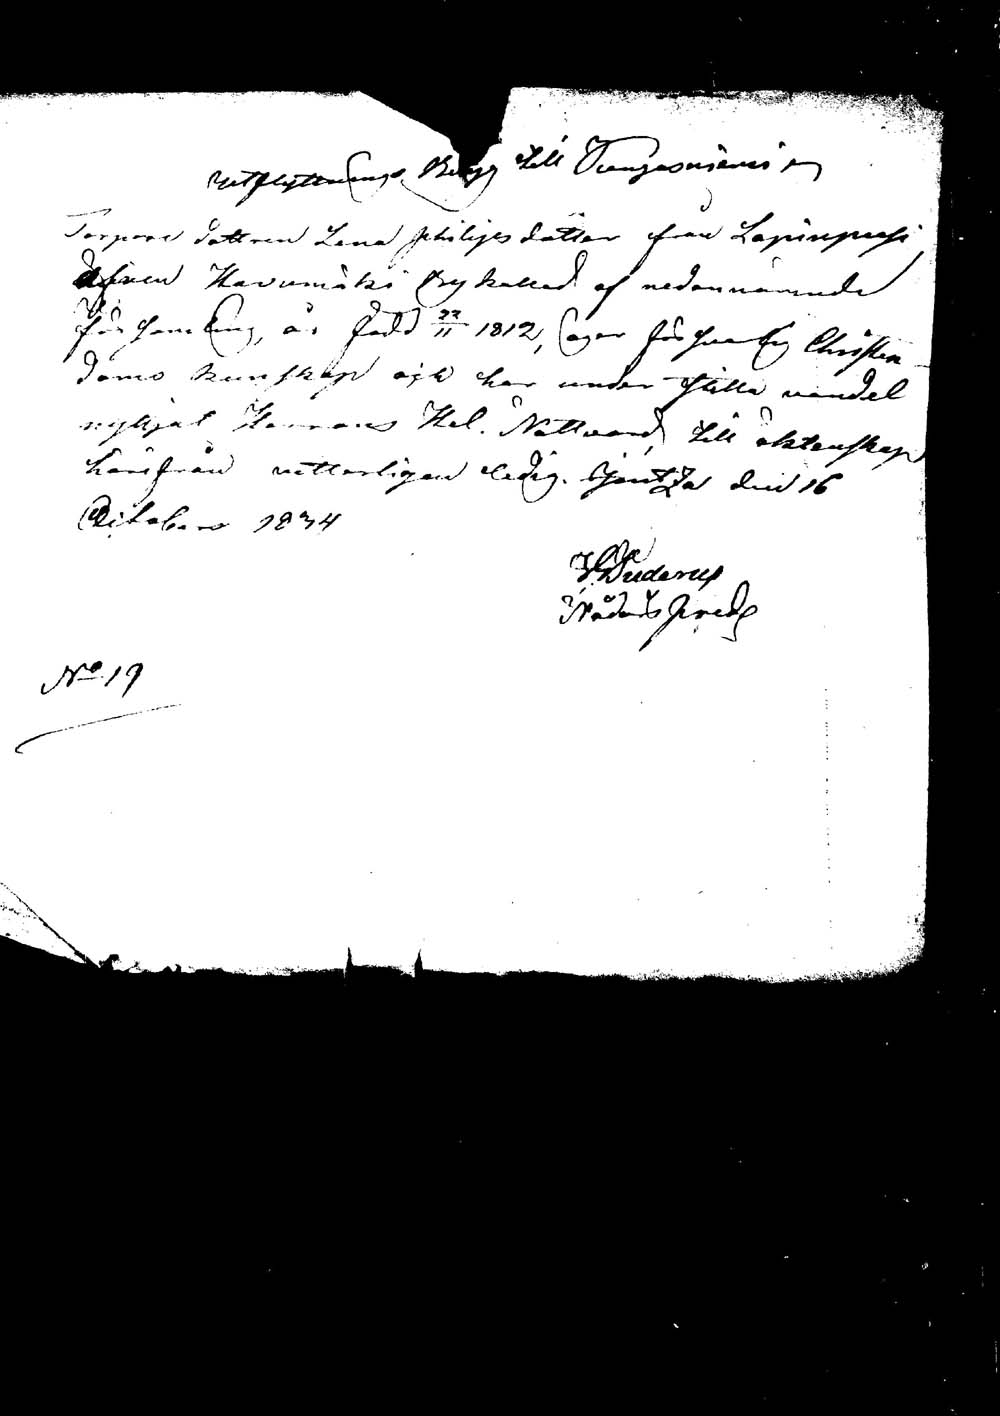 utflyttnings Betyg till Kangasniemi
Torpare dottren Lena Philips dotter från Lapinpuhj
äfven Harumäki Bykallad af nedannämnde
församling, är född 22/11 1812, äger försvarlig Christen-
doms kunskap och har under stilla vandel
nyttjat Herrans Hel. Nattvard, till äktenskap
härifrån vetterligen ledig. den 16
Octobers 1834
Nådårs Pred
No 19